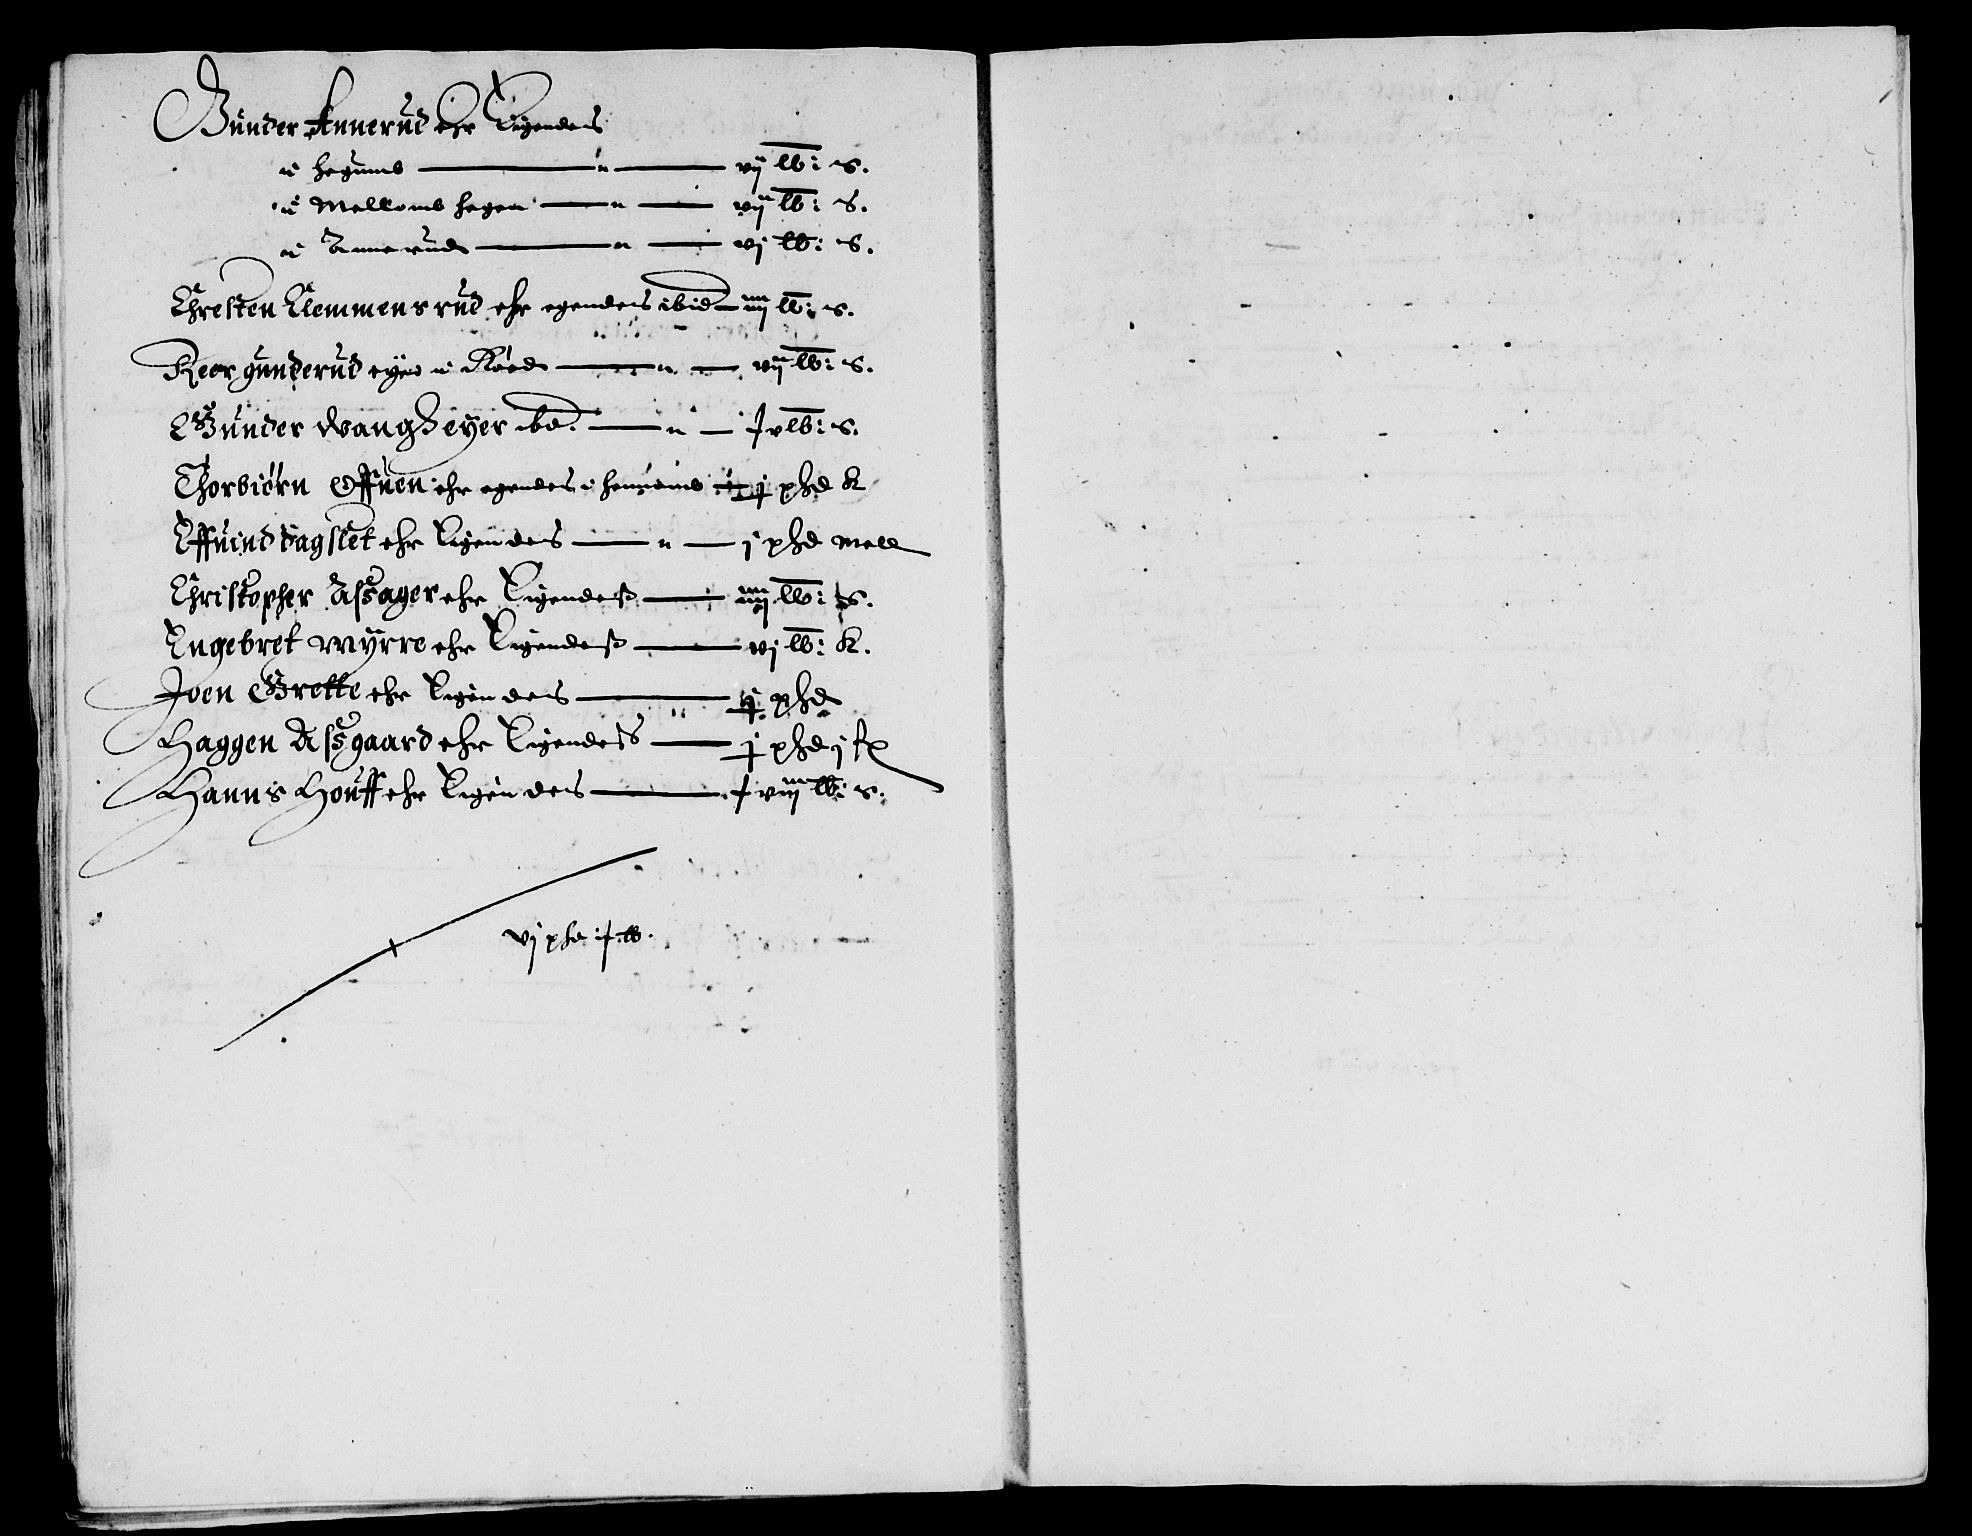 Gunder Annerud ehr Eigendes
i Hegums — " — vij lb: S.
i Mellomb Hegen — " — vij lb: S.
i Annerud — " — vj lb: S.
Chresten Clemmensrud ehr egendes ibid — iiij lb: S.
Peer Gunderud eyer i Røed — " — vij lb: S.
Gunder Wang Beyer ibd. — " — ƒ v lb: S.
Thorbiørn Offuen ehr egendes i — j phd K
Effuind Dagslet ehr Eigendes — " — j phd Mell
Christopher Assager ehr Eigendeß — iiij lb: S.
Engebret Myrre ehr Eigendeß — vj lb: K.
Joen Grette ehr Eigendes — ij phd
Haggen Assgaard ehr Eigendes — j phd j
Hanns Houff ehr Eigendes — ƒ viij lb: S.
vj phd ƒ lb.